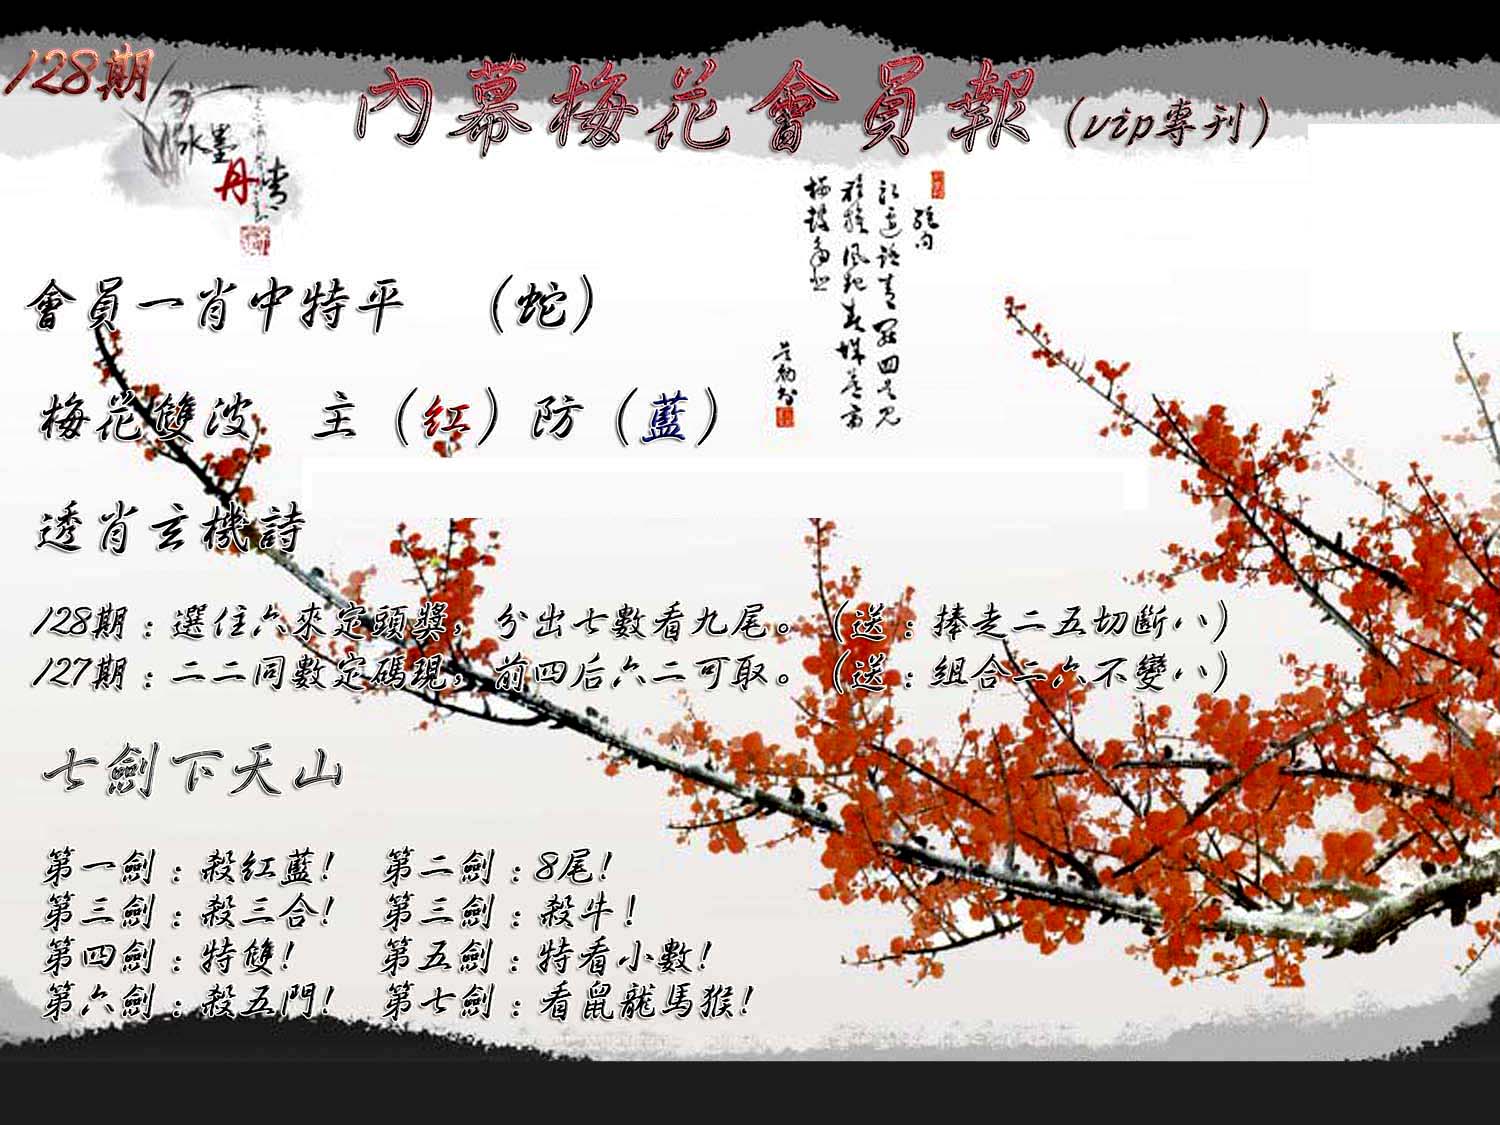 128期
內幕梅花會員報（vip專刊）
水墨
丹青
會員一肖中特平　（蛇）
梅花雙波　主（紅）防（藍）
透肖玄機詩
128期：選住六來定頭獎，分出七數看九尾。（送：捧走二五切斷八）
127期：二二同數定碼現，前四后六二可取。（送：組合二六不變八）
七劍下天山
第一劍：殺紅藍！　第二劍：8尾！
第三劍：殺三合！　第三劍：殺牛！
第四劍：特雙！　第五劍：特看小數！
第六劍：殺五門！　第七劍：看鼠龍馬猴！